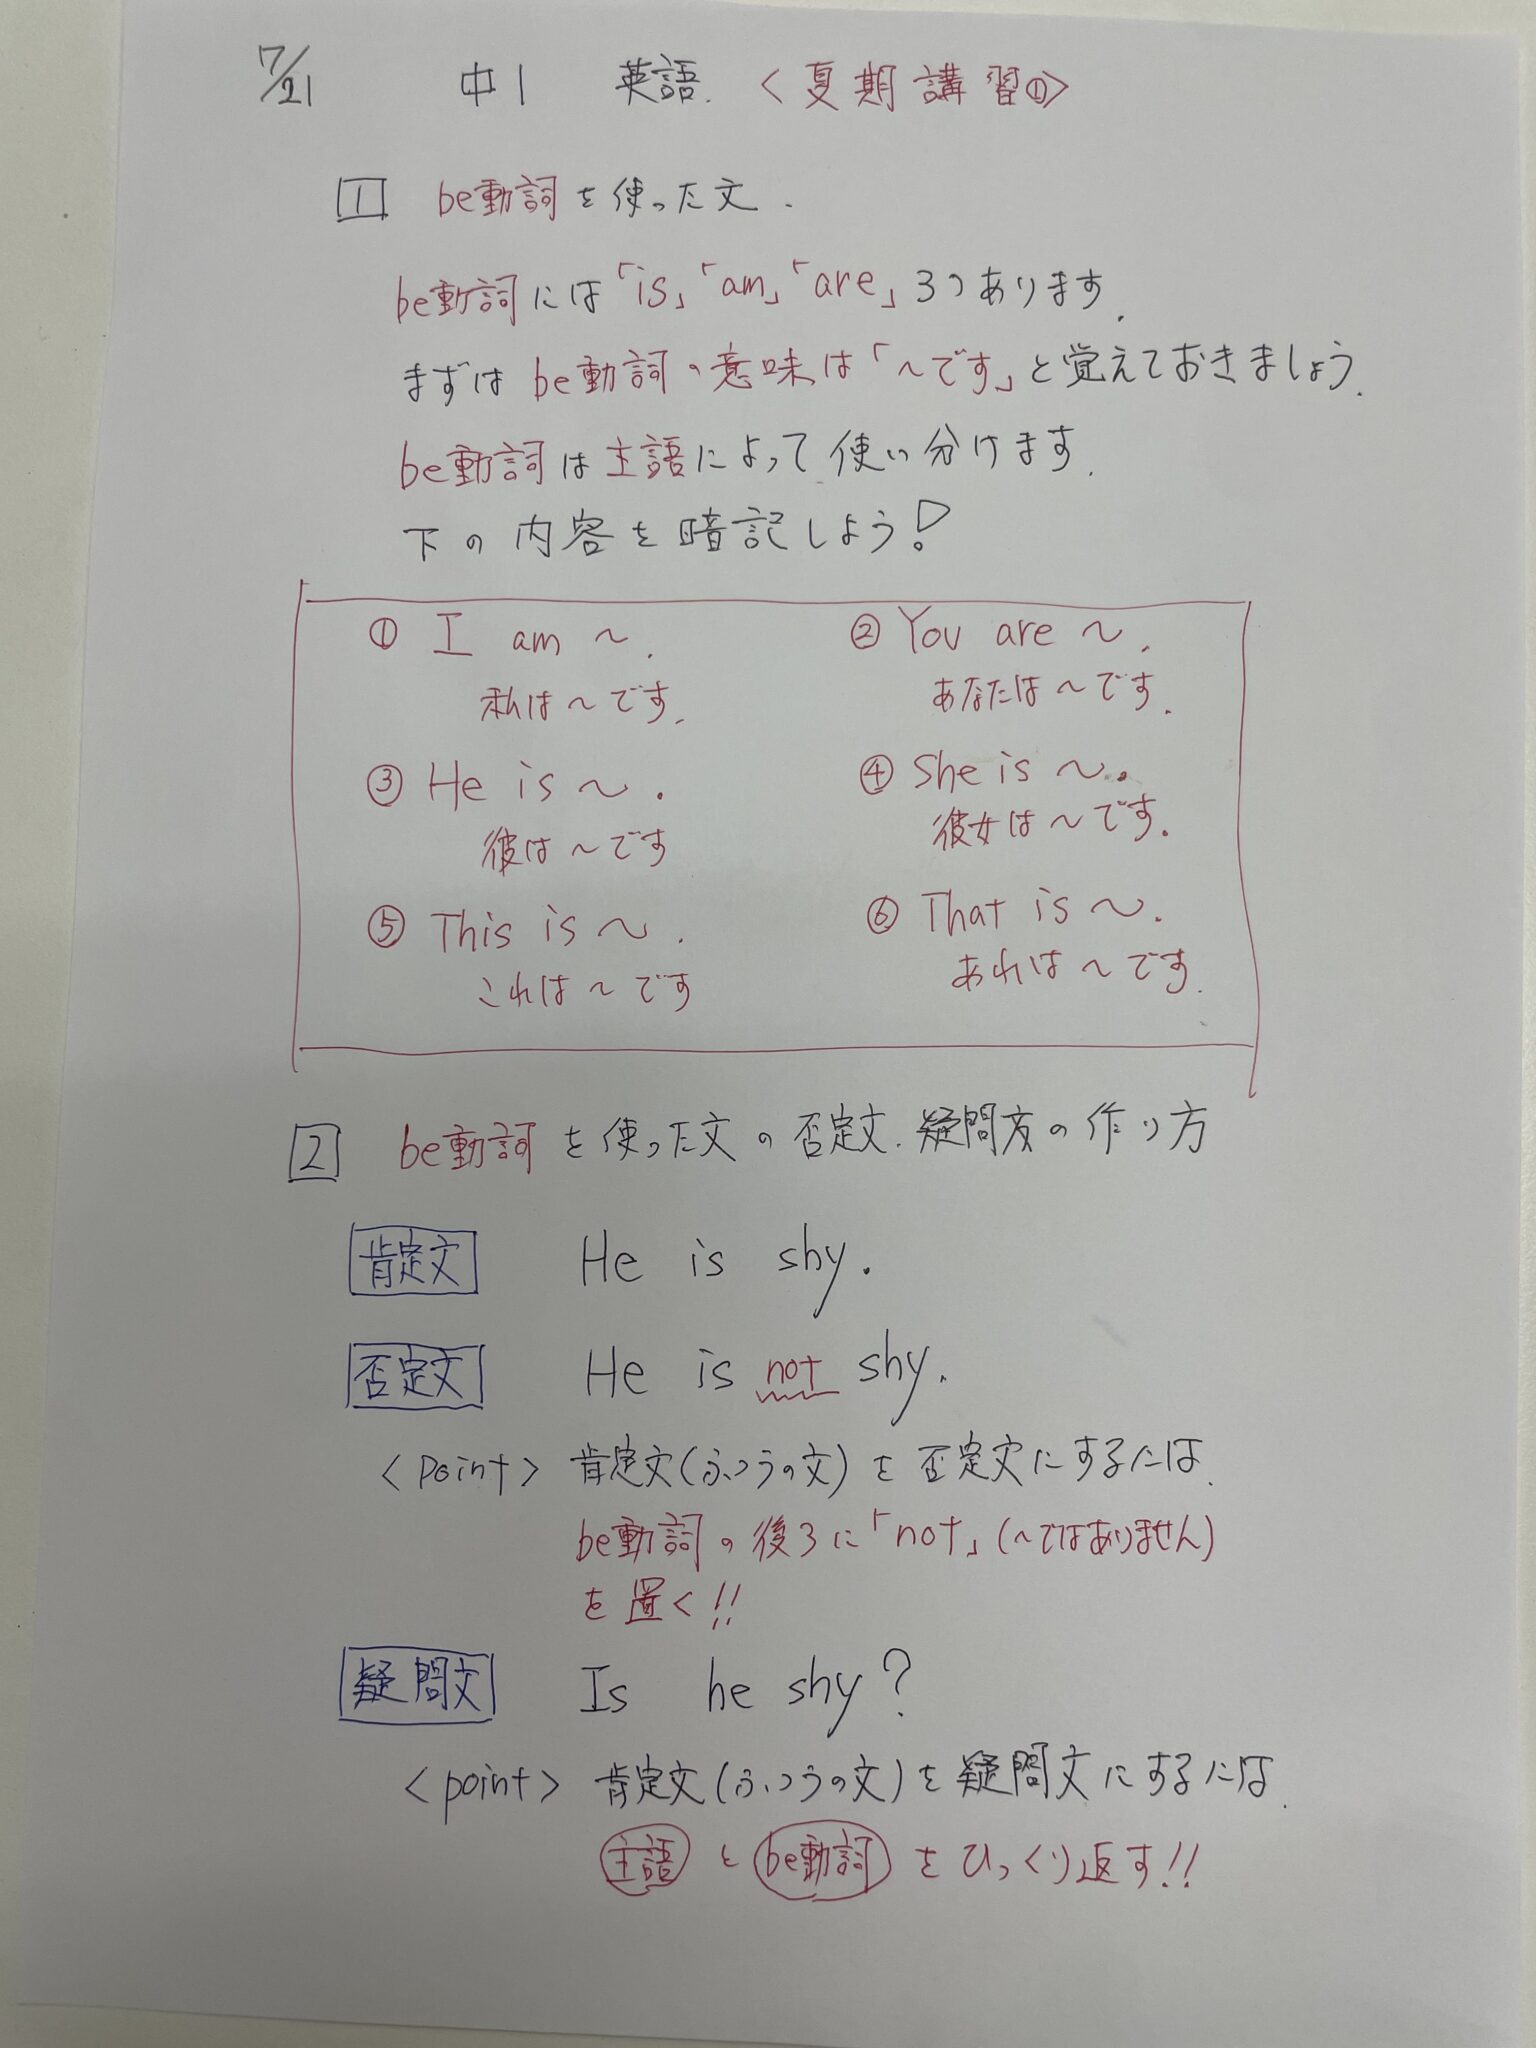 7/21 中1 英語. <夏期講習①>
1 be動詞を使った文.
be動詞には「is」「am」「are」3つあります.
まずはbe動詞の意味は「〜です」と覚えておきましょう.
be動詞は主語によって使い分けます.
下の内容を暗記しよう!
① I am 〜. ② You are 〜.
私は〜です. あなたは〜です.
③ He is 〜. ④ She is 〜.
彼は〜です 彼女は〜です.
⑤ This is 〜. ⑥ That is 〜.
これは〜です あれは〜です.
2 be動詞を使った文の否定文.疑問文の作り方
肯定文 He is shy.
否定文 He is not shy.
<point> 肯定文(ふつうの文)を否定文にするには.
be動詞の後ろに「not」(〜ではありません)
を置く!!
疑問文 Is he shy?
<point> 肯定文(ふつうの文)を疑問文にするには.
主語とbe動詞をひっくり返す!!